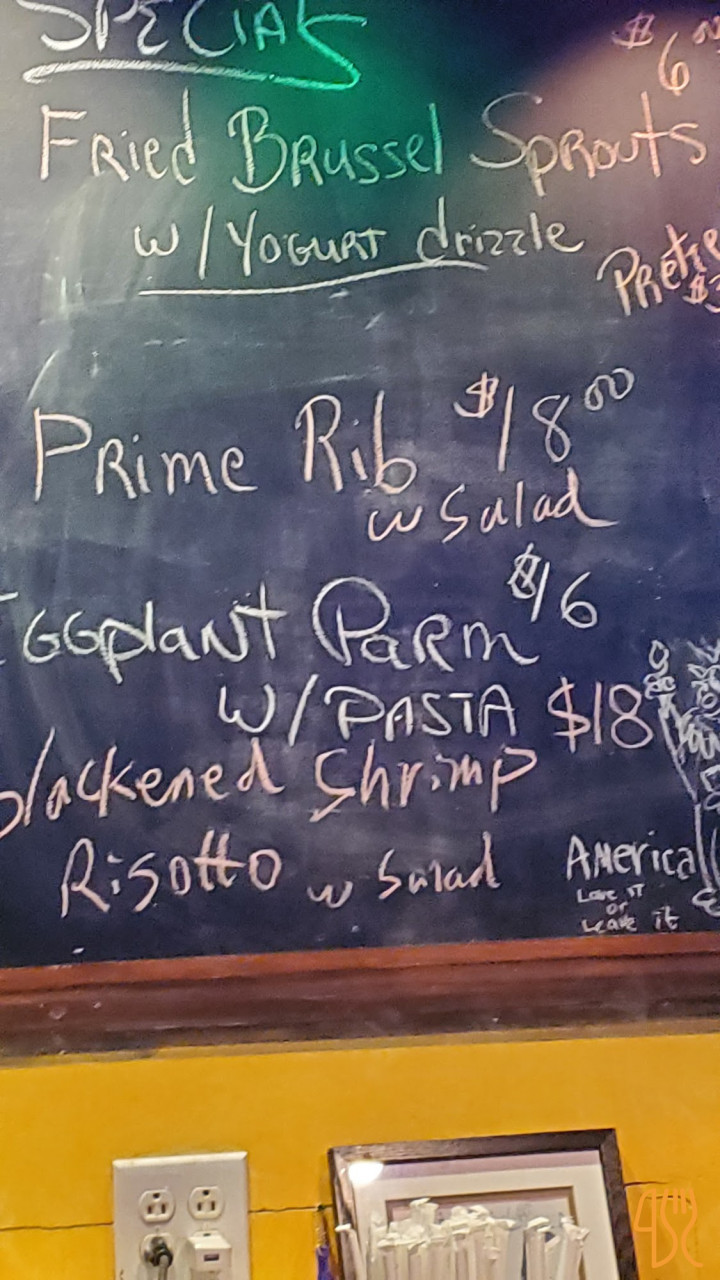 SPECIAL
$6.00
Fried Brussel Sprouts
w/Yogurt drizzle
Prime Rib $18.00
w Salad
Eggplant Parm $16
w/PASTA
$18
blackened Shrimp
Risotto w Salad
America
Love it
or
Leave it